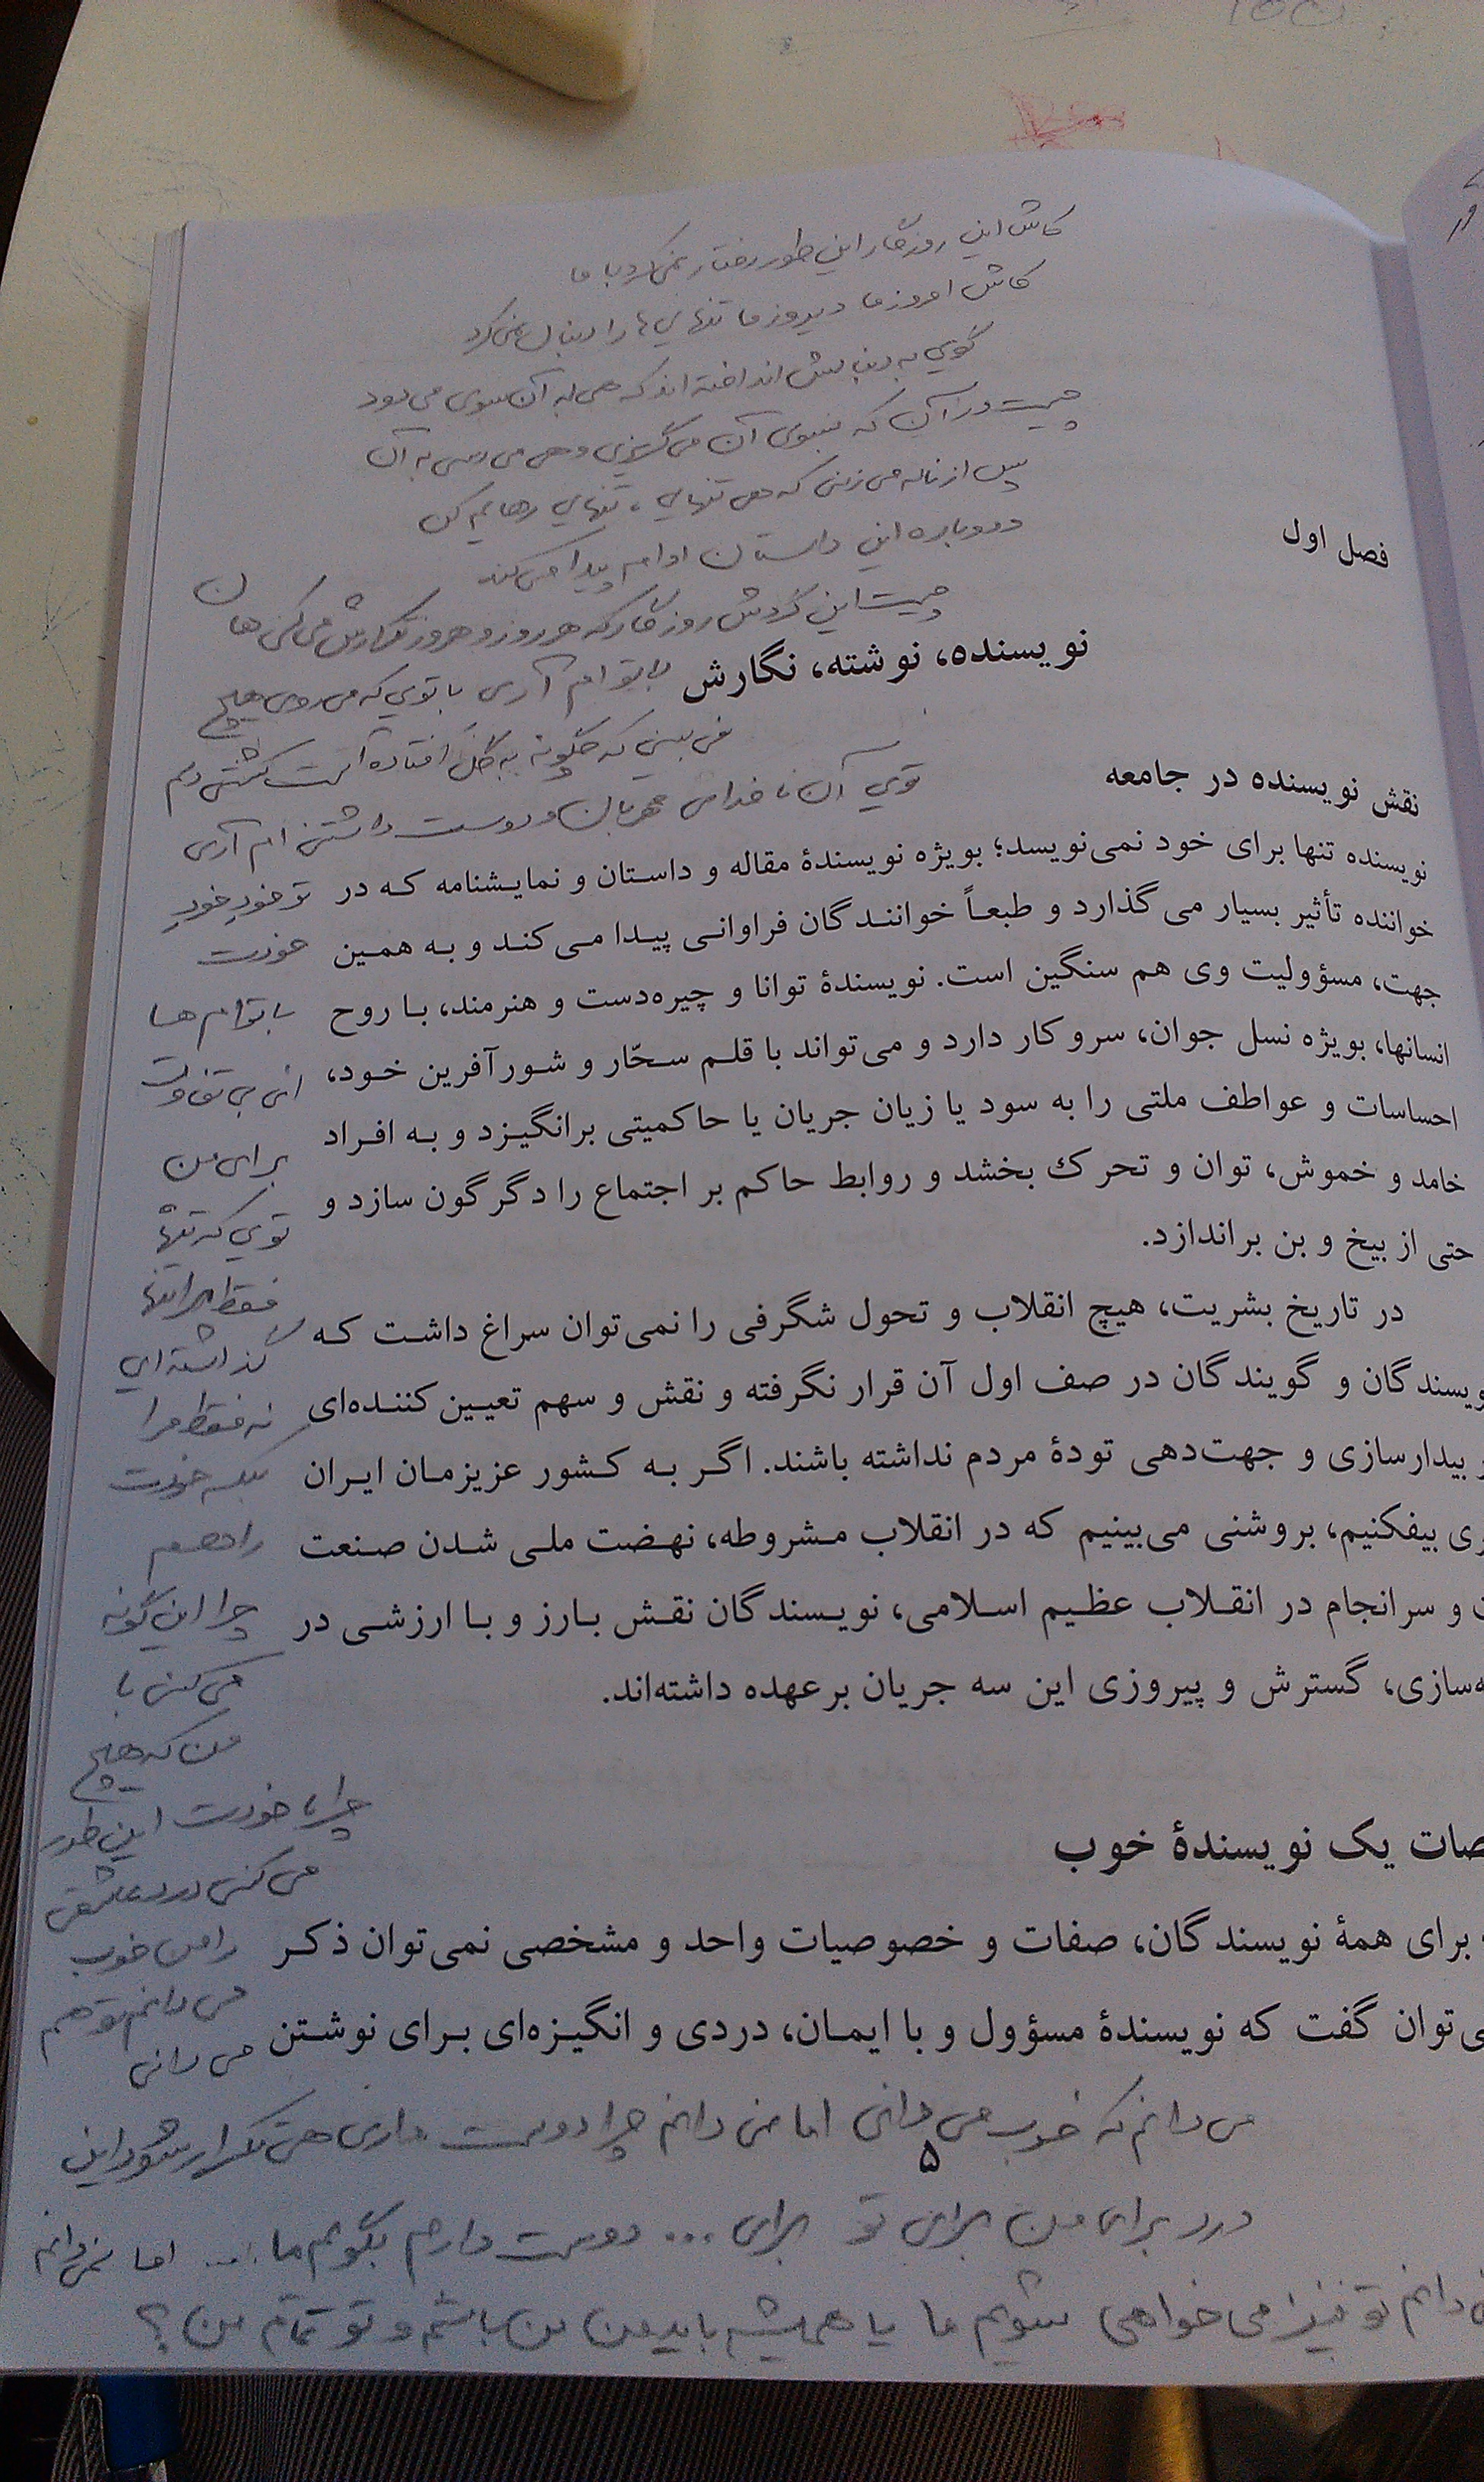 کاش این روزگار این طور رفتار نمی‌کرد با ما
کاش امروز ما دیروز ما تنهایی ها را دنبال نمی‌کرد
گویی به دنبالش انداخته اند که هی به آن سوی می‌دود
چیست در آن که بسوی آن می‌گریزی و هی می‌رسی به آن
پس از ناله می‌زنی که هی تنهایی، تنهایی رهایم کن
و دوباره این داستان ادامه پیدا می‌کند
چیست این گردش روزگار که هر روز و هر روز تکرارش می‌کنی هان
فصل اول
نویسنده، نوشته، نگارش
با تو ام آری با تویی که می‌روی هیچ
نمی بینی که چگونه به گل افتاده است کشتی دلم
تویی آن ناخدای مهربان و دوست داشتنی ام آری
نقش نویسنده در جامعه
نویسنده تنها برای خود نمی‌نویسد؛ بویژه نویسندهٔ مقاله و داستان و نمایشنامه که در
خواننده تأثیر بسیار می‌گذارد و طبعاً خوانندگان فراوانی پیدا می‌کند و به همین
جهت، مسؤولیت وی هم سنگین است. نویسندهٔ توانا و چیره‌دست و هنرمند، با روح
انسانها، بویژه نسل جوان، سروکار دارد و می‌تواند با قلم سحّار و شورآفرین خود،
احساسات و عواطف ملتی را به سود یا زیان جریان یا حاکمیتی برانگیزد و به افراد
خامد و خموش، توان و تحرک بخشد و روابط حاکم بر اجتماع را دگرگون سازد و
حتی از بیخ و بن براندازد.
در تاریخ بشریت، هیچ انقلاب و تحول شگرفی را نمی‌توان سراغ داشت که
ویسندگان و گویندگان در صف اول آن قرار نگرفته و نقش و سهم تعیین کننده‌ای
ر بیدارسازی و جهت‌دهی تودهٔ مردم نداشته باشند. اگر به کشور عزیزمان ایران
ری بیفکنیم، بروشنی می‌بینیم که در انقلاب مشروطه، نهضت ملی شدن صنعت
و سرانجام در انقلاب عظیم اسلامی، نویسندگان نقش بارز و با ارزشی در
ه‌سازی، گسترش و پیروزی این سه جریان برعهده داشته‌اند.
صات یک نویسندهٔ خوب
برای همهٔ نویسندگان، صفات و خصوصیات واحد و مشخصی نمی‌توان ذکر
ی‌توان گفت که نویسندهٔ مسؤول و با ایمان، دردی و انگیزه‌ای برای نوشتن
تو خود خود
خودت
با توام هـا
ای بی تفاوت
برای من
تویی که تنها
فقط مرا تنها
گذاشته ای
نه فقط مرا
بلکه خودت
را هم
چرا این گونه
می کنی با
من که هیچ
چرا با خودت این طور
می کنی درد عاشقی
را من خوب
می دانم تو هم
می دانی
می دانم که خوب می دانی اما نمی دانم چرا دوست داری هی تکرار شود این
۵
درد برای من برای تو برای ... دوست دارم بگویم ما ... اما نمی دانم
دانم تو نیز می خواهی شویم ما یا همیشه باید من من باشم و تو تمام من ؟